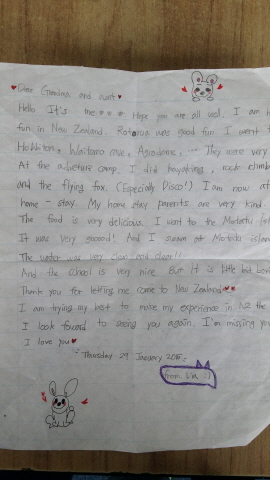 ♥Dear Grandma and aunt♥
Hello It's me Hope you are all well. I am
fun in New Zealand. Rotorua was good fun I went
Hobbiton, Waitomo cave, Agrodome, They were very
At the adventure camp, I did kayaking, rock climb
and the flying fox. (Especially Disco!) I am now at
home - stay. My home stay parents are very kind.
The food is very delicious. I went to the
It was very gooood! And I swam at
The water was very clean and clear!!
And the school is very nice. But it is little bit
Thank you for letting me come to New Zealand♥♥
I am trying my best to make my experience in NZ the
I look foward to seeing you again. I'm missing you
I love you♥
Thursday 29 January 2015
from :)